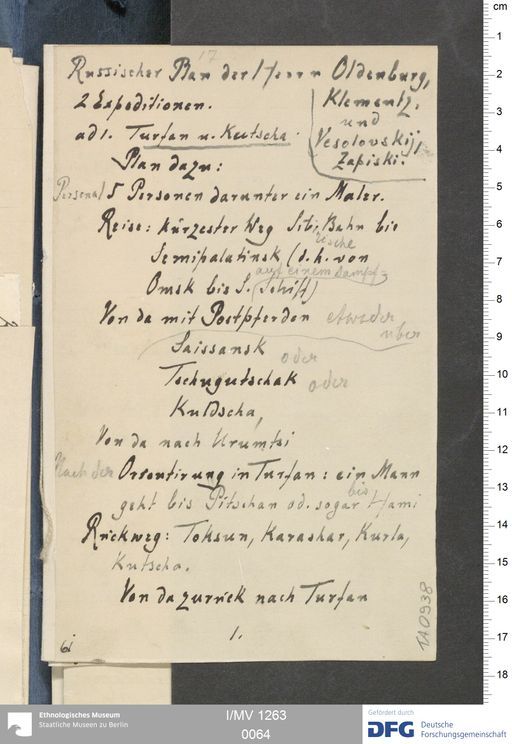 17
Russischer Plan der Herrn Oldenburg,
2 Expeditionen. Klementz,
und
ad 1. Turfan u. Kutscha. Vesolovskij,
Plan dazu: Zapiski.
Personal 5 Personen darunter ein Maler.
Reise: kürzester Weg Sibirische Bahn bis
Semipalatinsk (d.h. von
auf einem Dampf=
Omsk bis S. (Schiff)
Von da mit Postpferden etweder
über
Saissansk oder
Tschugutschak oder
Kuldscha,
Von da nach Urumtsi
Nach der Orientirung in Turfan: ein Mann
geht bis Pitschan od. sogar bis Hami
Rückweg: Toksun, Karashar, Kurla,
Kutscha.
Von da zurück nach Turfan
1.
1A0938
cm
1
2
3
4
5
6
7
8
9
10
11
12
13
14
15
16
17
18
Ethnologisches Museum
Staatliche Museen zu Berlin
I/MV 1263
0064
Gefördert durch
DFG Deutsche
Forschungsgemeinschaft